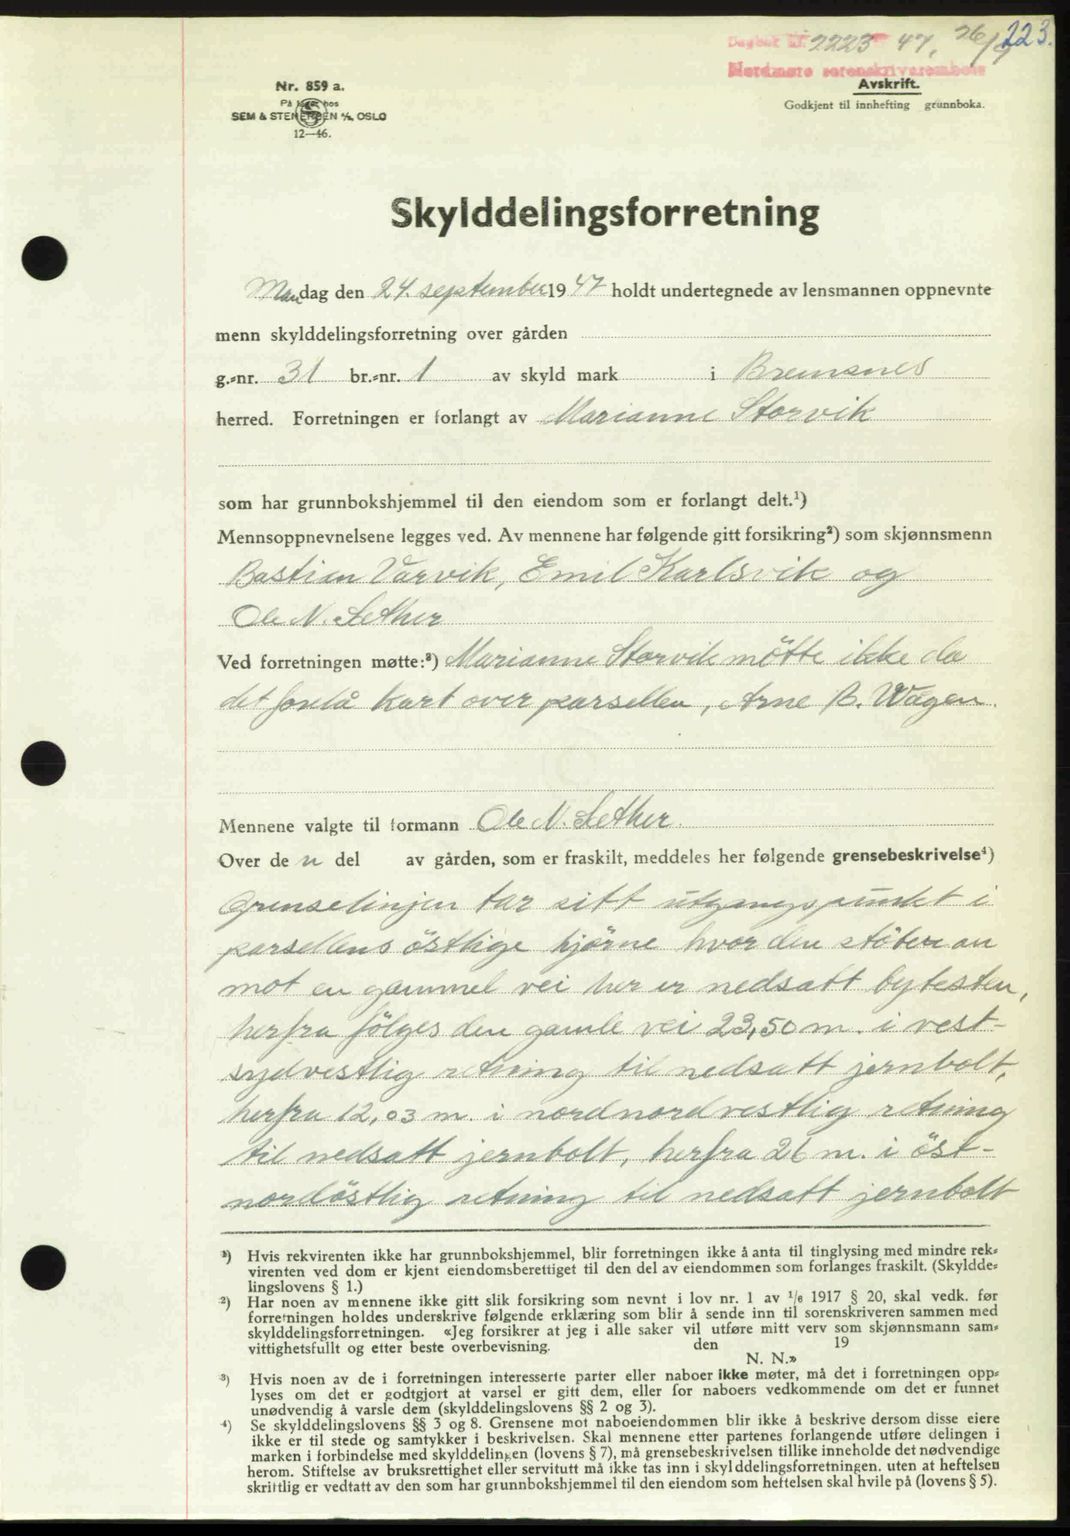 223.
Dagbok nr. 2223 - 47, 26/9
Nordmøre sorenskriverembete
Nr. 859 a.
På lager hos
SEM & STENERSEN A/S, OSLO
12—46.
Avskrift.
Godkjent til innhefting grunnboka.
Skylddelingsforretning
Mandag den 24. september 1947 holdt undertegnede av lensmannen oppnevnte
menn skylddelingsforretning over gården
g.-nr. 31 br.-nr. 1 av skyld mark i Bremsnes
herred. Forretningen er forlangt av Marianne Storvik
som har grunnbokshjemmel til den eiendom som er forlangt delt.¹)
Mennsoppnevnelsene legges ved. Av mennene har følgende gitt forsikring²) som skjønnsmenn
Bastian Varvik, Emil Karlsvik og
Ole N. Sether
Ved forretningen møtte:³) Marianne Storvik mötte ikke da
det forelå kart over parsellen, Arne B. Wågen.
Mennene valgte til formann Ole N. Sether.
Over de n del av gården, som er fraskilt, meddeles her følgende grensebeskrivelse⁴)
Grenselinjen tar sitt utgangspunkt i
parsellens östlige hjörne hvor den stöter an
mot en gammel vei her er nedsatt bytesten,
herfra fölges den gamle vei 23,50 m. i vest-
sydvestlig retning til nedsatt jernbolt,
herfra 12,03 m. i nordnordvestlig retning
til nedsatt jernbolt, herfra 26 m. i öst-
nordöstlig retning til nedsatt jernbolt
¹) Hvis rekvirenten ikke har grunnbokshjemmel, blir forretningen ikke å anta til tinglysing med mindre rek-
virenten ved dom er kjent eiendomsberettiget til den del av eiendommen som forlanges fraskilt. (Skyldde-
lingslovens § 1.)
²) Har noen av mennene ikke gitt slik forsikring som nevnt i lov nr. 1 av 1/6 1917 § 20, skal vedk. før
forretningen holdes underskrive følgende erklæring som blir å sende inn til sorenskriveren sammen med
skylddelingsforretningen. «Jeg forsikrer at jeg i alle saker vil utføre mitt verv som skjønnsmann sam-
vittighetsfullt og etter beste overbevisning. den 19
N. N.»
³) Hvis noen av de i forretningen interesserte parter eller naboer ikke møter, må det i forretningen opp-
lyses om det er godtgjort at varsel er gitt dem, eller for naboers vedkommende om det er funnet
unødvendig å varsle dem (skylddelingslovens §§ 2 og 3).
⁴) Se skylddelingslovens §§ 3 og 8. Grensene mot naboeiendommen blir ikke å beskrive dersom disse eiere
ikke er til stede og samtykker i beskrivelsen. Skal mennene etter partenes forlangende utføre delingen i
marken i forbindelse med skylddelingen (lovens § 7), må grensebeskrivelsen tillike inneholde det nødvendige
herom. Stiftelse av bruksrettighet eller servitutt må ikke tas inn i skylddelingsforretningen, uten at heftelsen
skriftlig er vedtatt av den som har grunnbokshjemmel til den eiendom som heftelsen skal hvile på (lovens § 5).